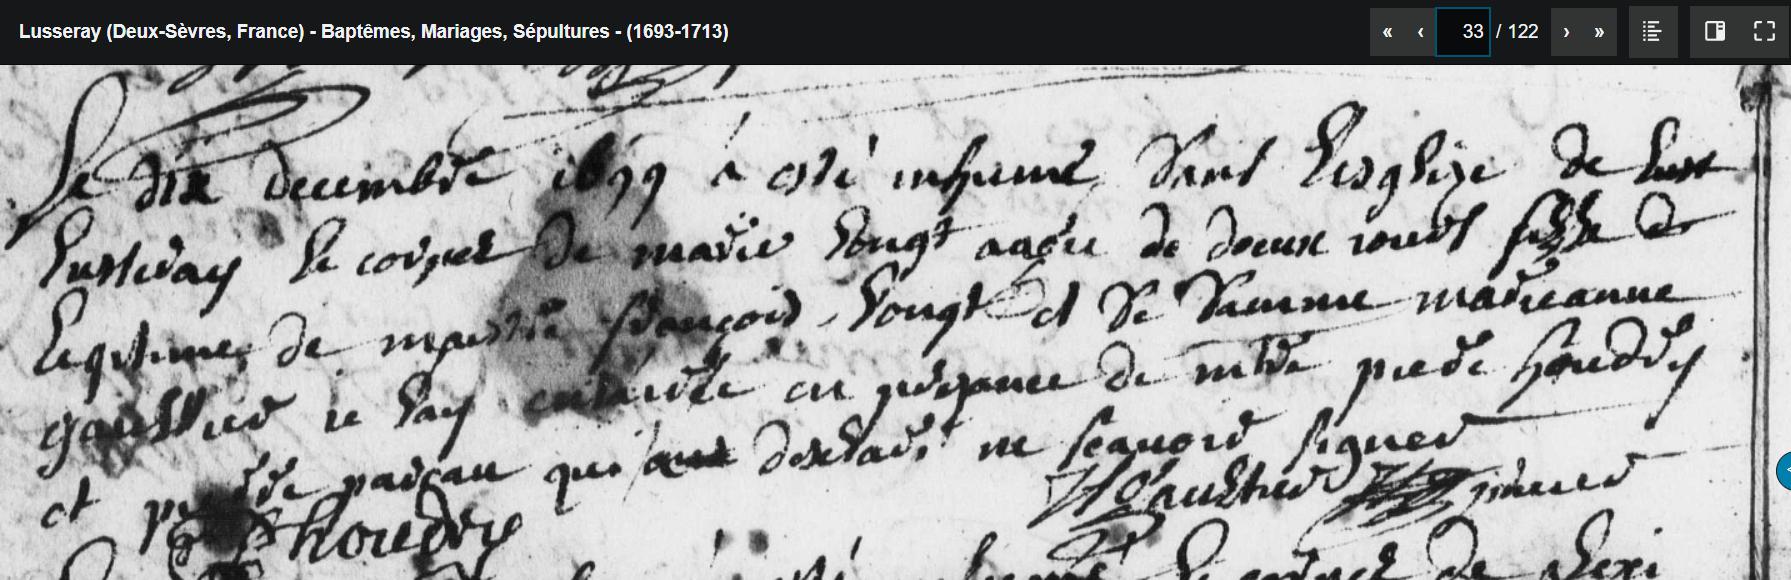 Lusseray (Deux-Sèvres, France) - Baptêmes, Mariages, Sépultures - (1693-1713)
« ‹ 33 / 122 › »
Le dix decembre 1699 a esté inhumé dans l'esglize de
Lusseray le corps de marie Vougt aagée de deux jours fille
legitime de maistre françois Vougt et de damme marieanne
gaultier je l'ay enterrée en presance de mtre piere houdry
et pierre pareau qui ont desclaré ne scavoir signer
houdry Gaultier prieur